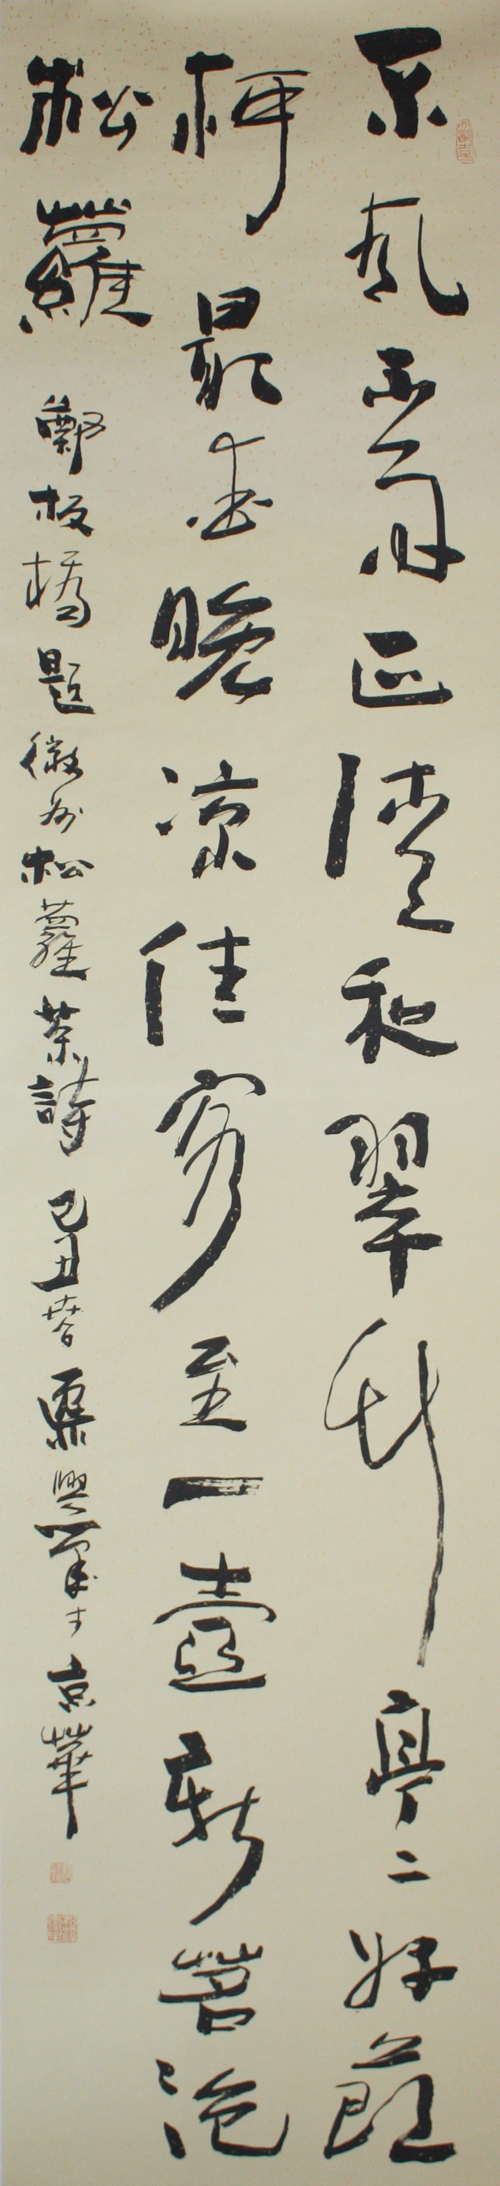 不風不雨正清和翠竹亭々好節
柯最愛晚凉佳客至一壺新茗泡
松蘿 鄭板橋題徽州松蘿茶詩 己丑春 于京華